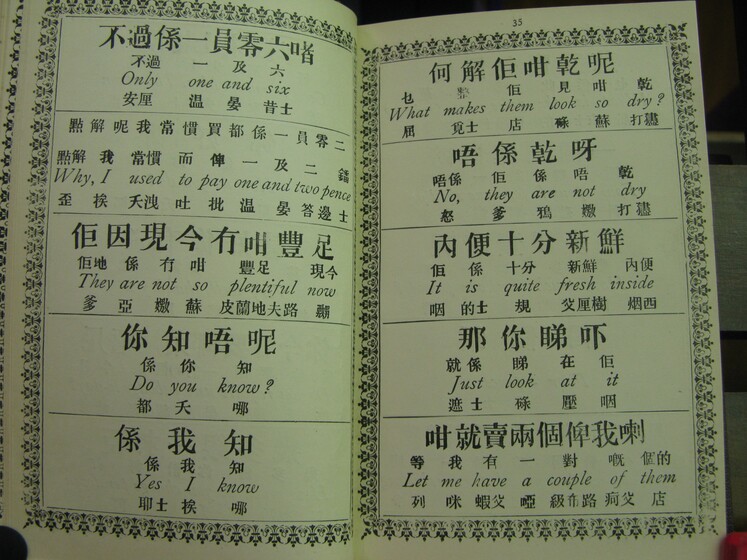 不過係一員零六啫
不過 一 及 六
Only one and six
安厘 温 晏 昔士
點解呢我當慣買都係一員零二
點解 我 當慣 而 俾 一 及 二
Why, I used to pay one and two pence
歪 挨 天洩 吐 批 温 晏 答邊士
佢因現今冇咁豐足
佢哋 係 冇 咁 豐足 現今
They are not so plentiful now
爹 亞 嫐 蘇 皮蘭地夫路
你知唔呢
係 你 知
Do you know?
都 夭 哪
係我知
係 我 知
Yes I know
耶士 挨 哪
35
何解佢咁乾呢
乜 整 佢 見 咁 乾
What makes them look so dry?
屈 士 店 碌 蘇 打
唔係乾呀
唔係 佢 係 唔 乾
No, they are not dry
怒 爹 鴉 嫐 打
內便十分新鮮
佢 係 十分 新鮮 內便
It is quite fresh inside
咽 的士 規 烟西
那你睇吓
就係 睇 在 佢
Just look at it
遮士 碌 壓 咽
咁就賣兩個俾我喇
等 我 有 一 對 嘅 個的
Let me have a couple of them
列 咪 蝦 啞 級布路 店